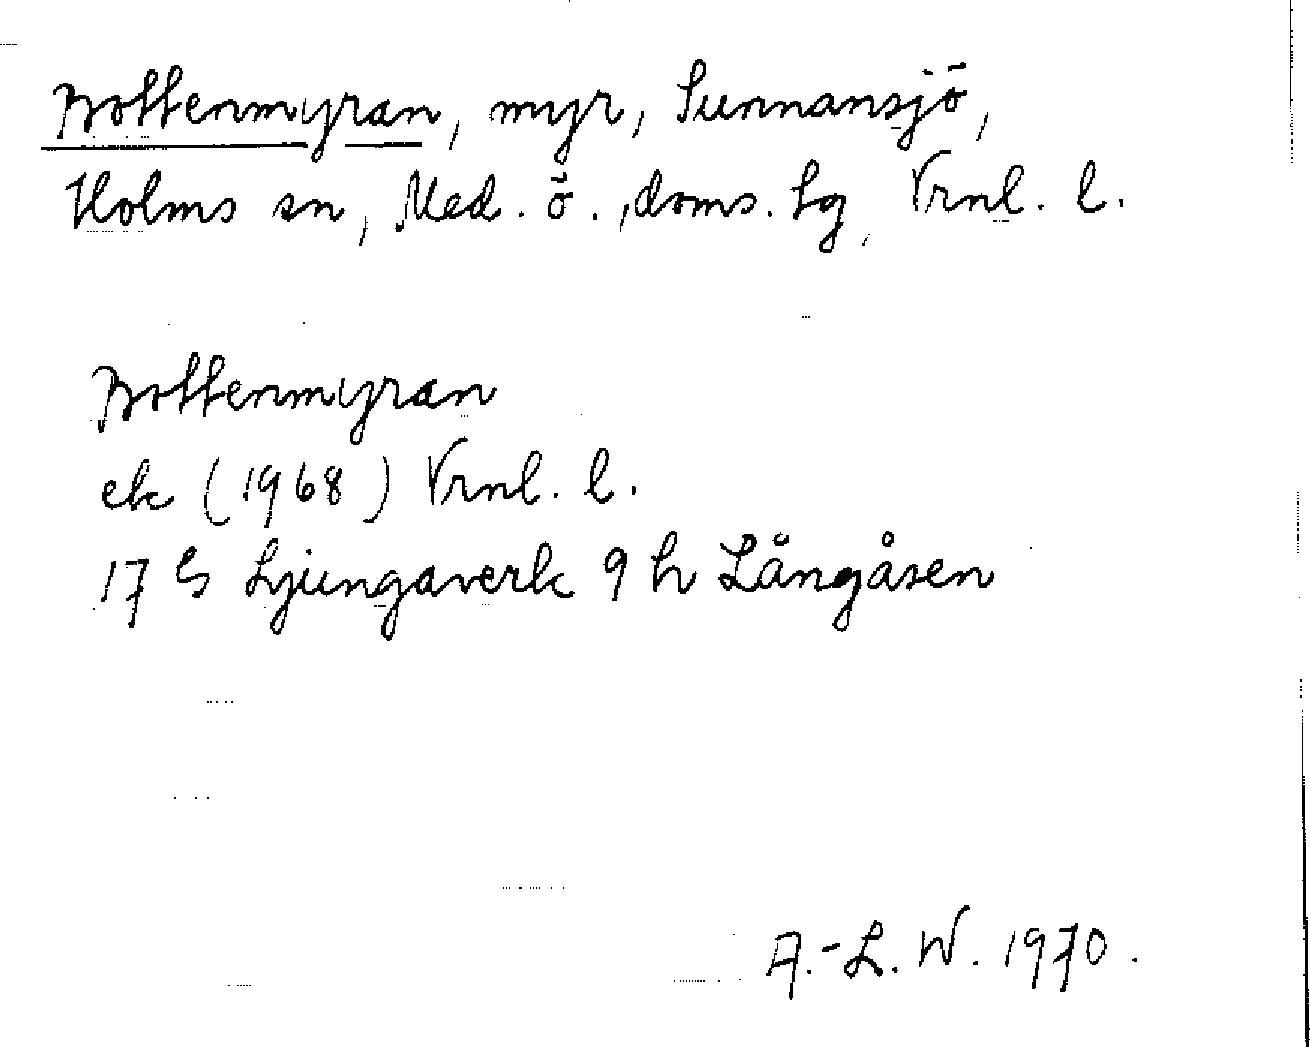 Bottenmyran, myr, Sunnansjö,
Holms sn, Med. ö., doms. lg, Vrnl. l.
Bottenmyran
ek (1968) Vrnl. l.
17 G Ljungaverk 9 h Långåsen
A.-L. W. 1970.